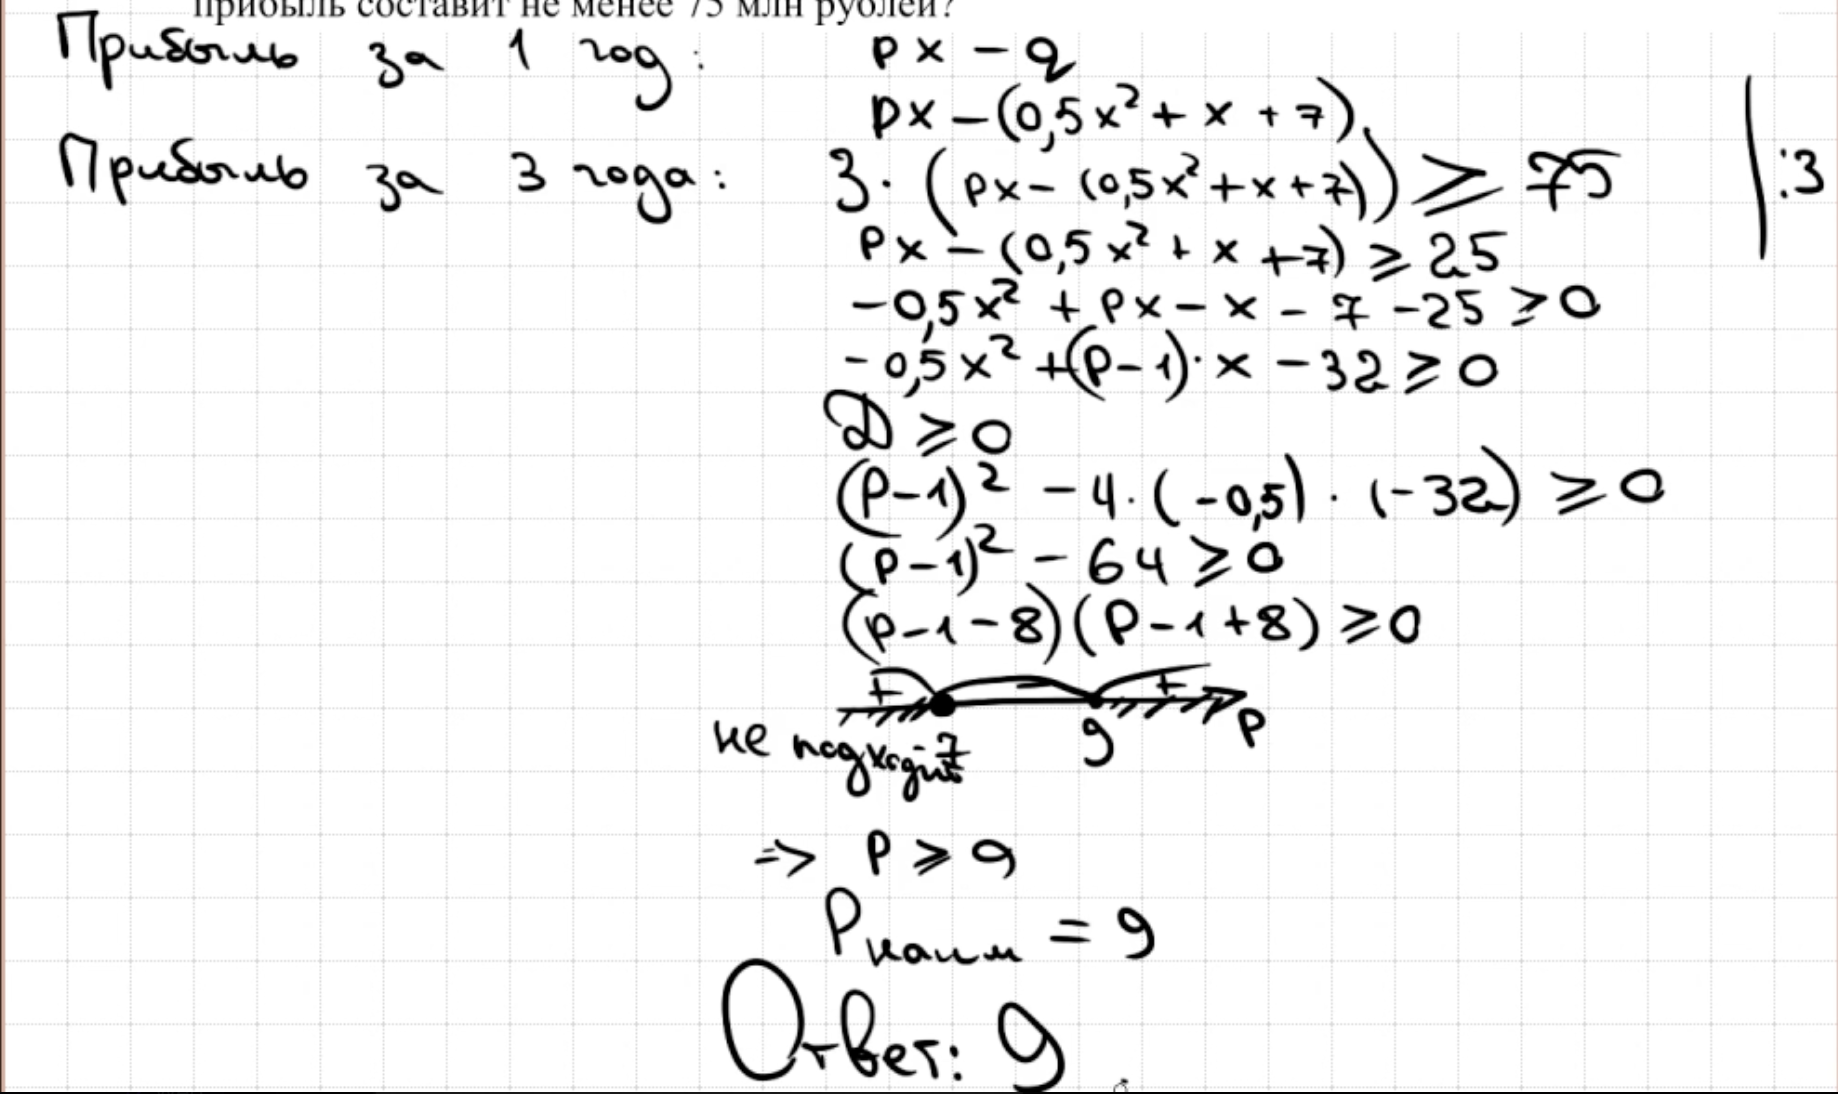 прибыль составит не менее 75 млн рублей?
Прибыль за 1 год: px - q
px - (0,5x² + x + 7)
Прибыль за 3 года: 3·(px - (0,5x² + x + 7)) ⩾ 75 | :3
px - (0,5x² + x + 7) ⩾ 25
-0,5x² + px - x - 7 - 25 ⩾ 0
-0,5x² + (p-1)·x - 32 ⩾ 0
D ⩾ 0
(p-1)² - 4·(-0,5)·(-32) ⩾ 0
(p-1)² - 64 ⩾ 0
(p-1-8)(p-1+8) ⩾ 0
+ - +
-7 9 p
не подходит
=> p ⩾ 9
Pнаим = 9
Ответ: 9